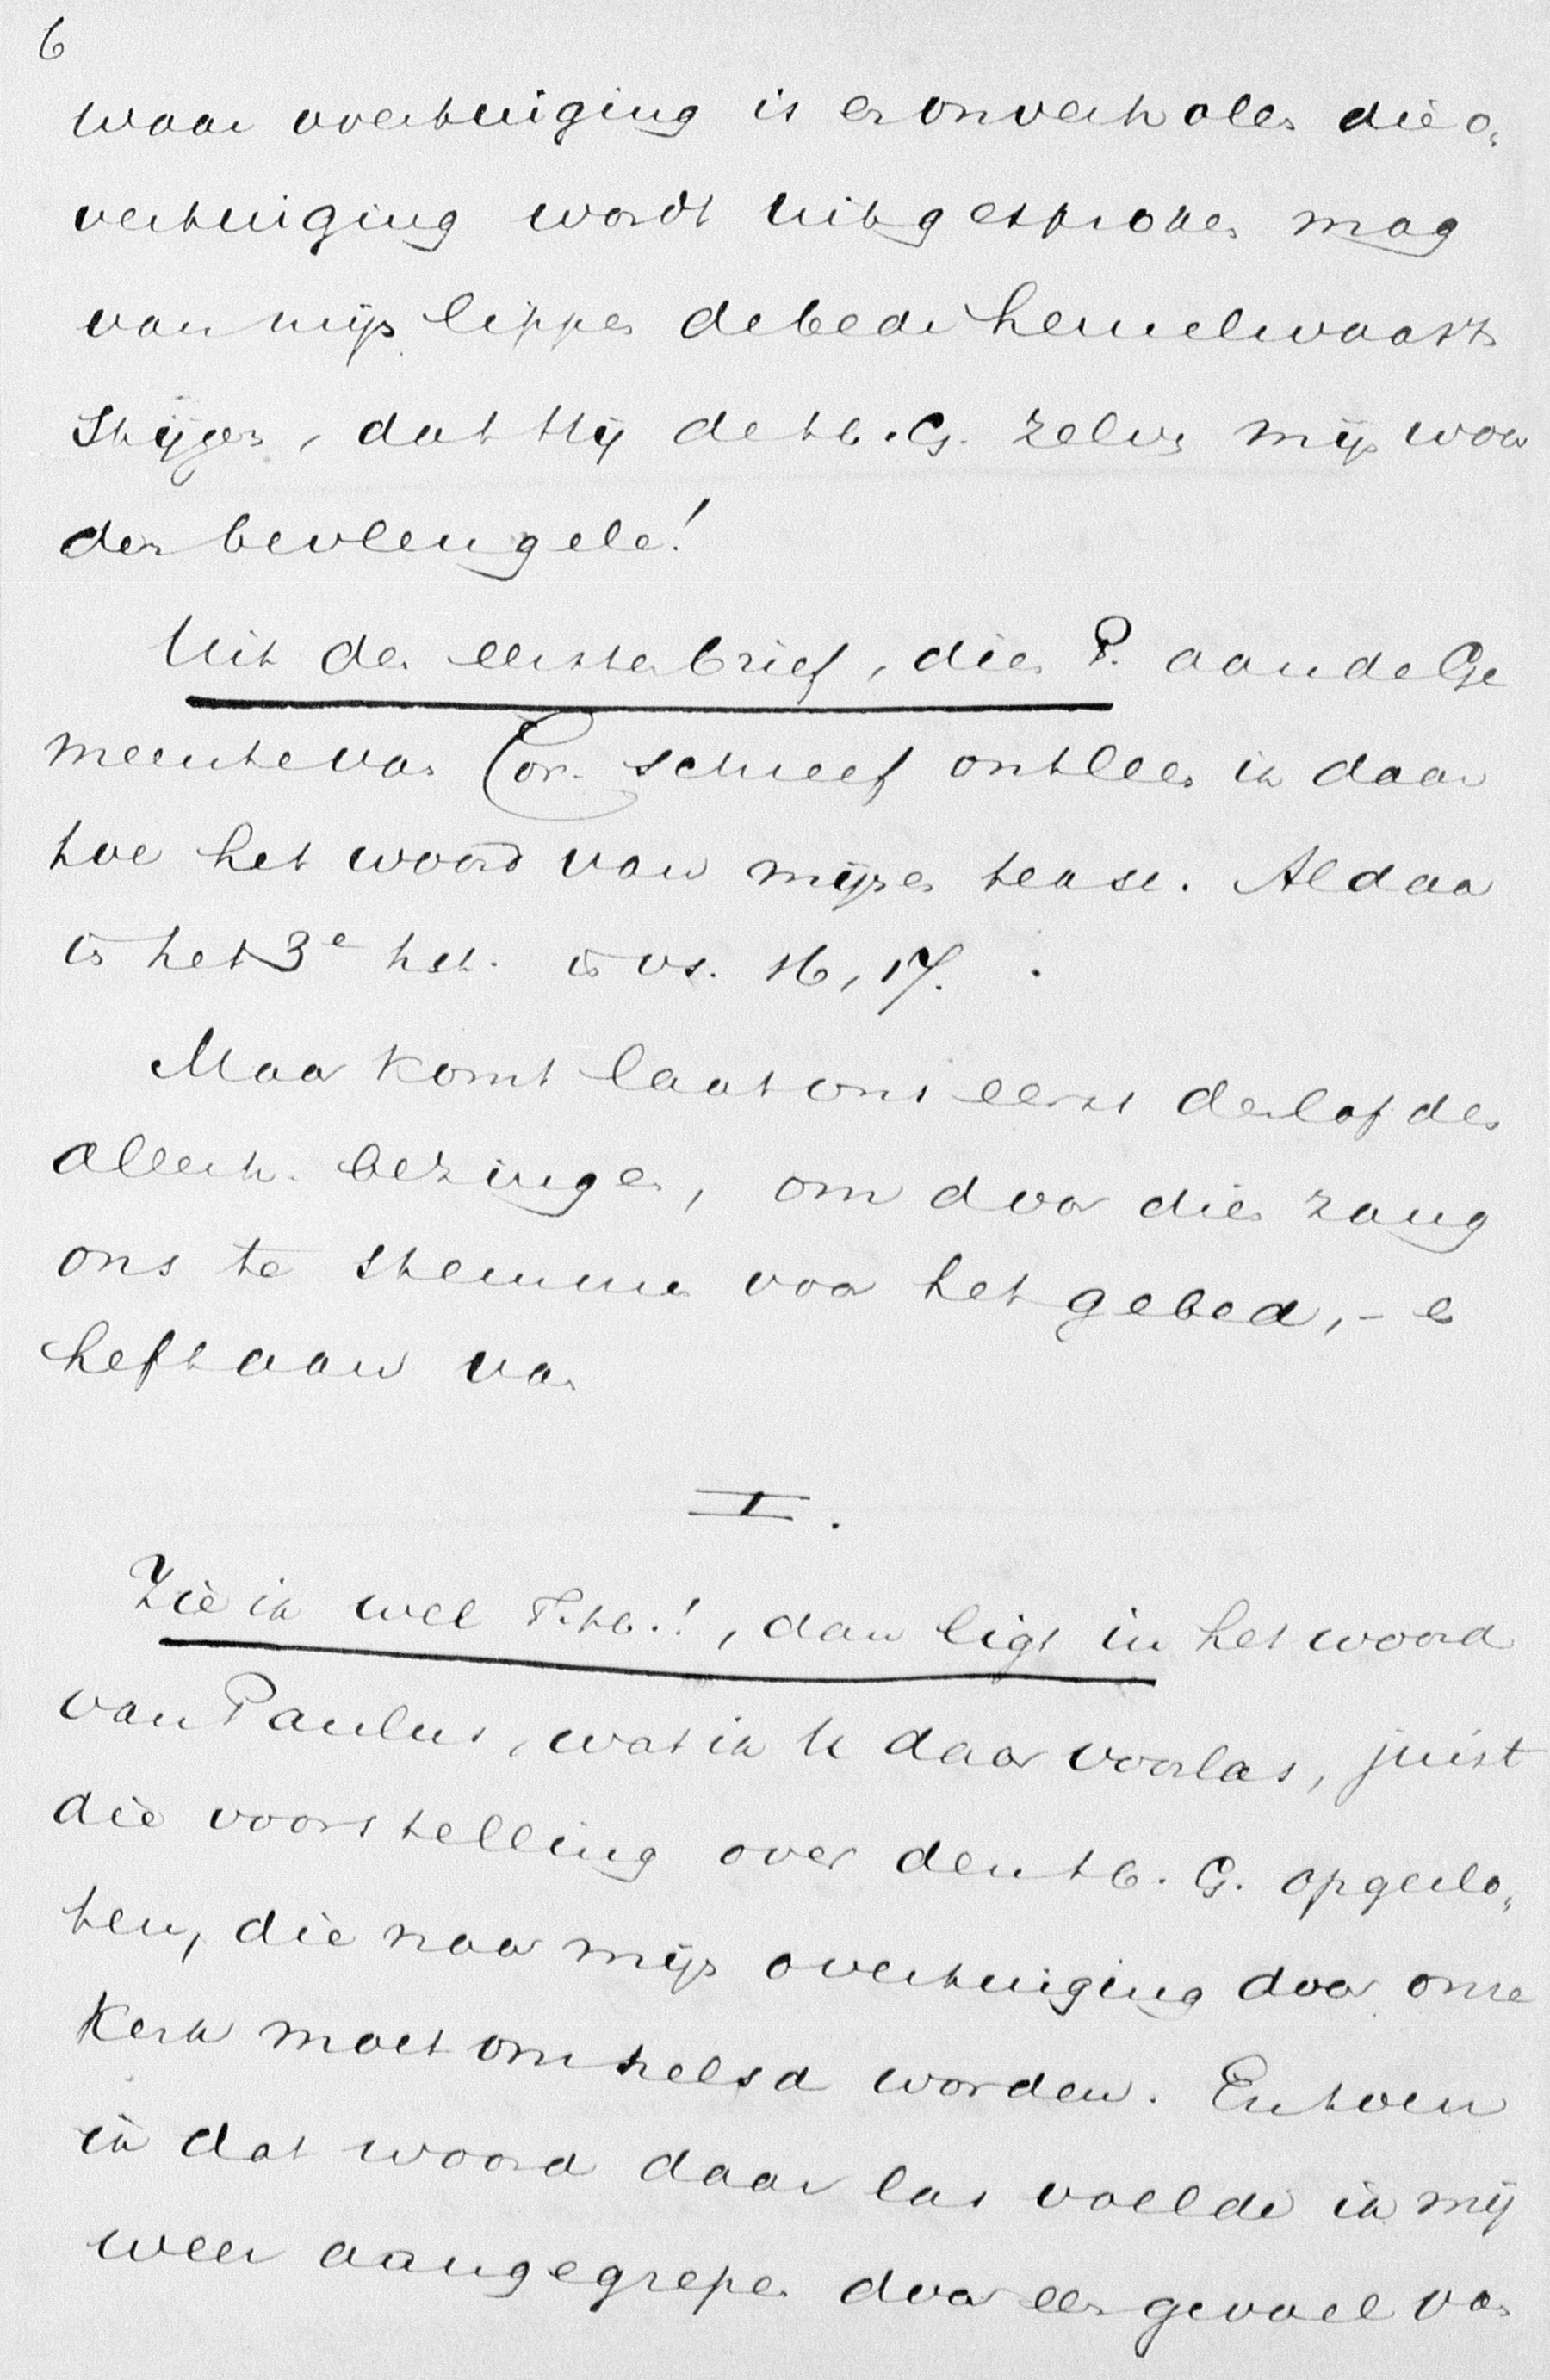 6
waar overtuiging is en onverholen die o„
vertuiging wordt uitgesproken mag
van mijn lippen de bede hemelwaarts
stijgen, dat Hij de H. G. zelve mijn woor
den bevleugele!
Uit den eersten brief, dien P. aan de Ge
meente van Cor. schreef ontleen ik daar
toe het woord van mijnen tekst. Aldaar
in het 3e hst. in vs. 16, 17.
Maar komt laat ons eerst den lof des
Allerh. bezingen, om door dien zang
ons te stemmen voor het gebed, - en
heft aan van
I.
Zie ik wel T. H.!, dan ligt in het woord
van Paulus, wat ik U daar voorlas, juist
die voorstelling over den H. G. opgeslo„
ten, die naar mijn overtuiging door onze
Kerk moet omhelsd worden. En toen
ik dat woord daar las voelde ik mij
weer aangegrepen door een gevoel van